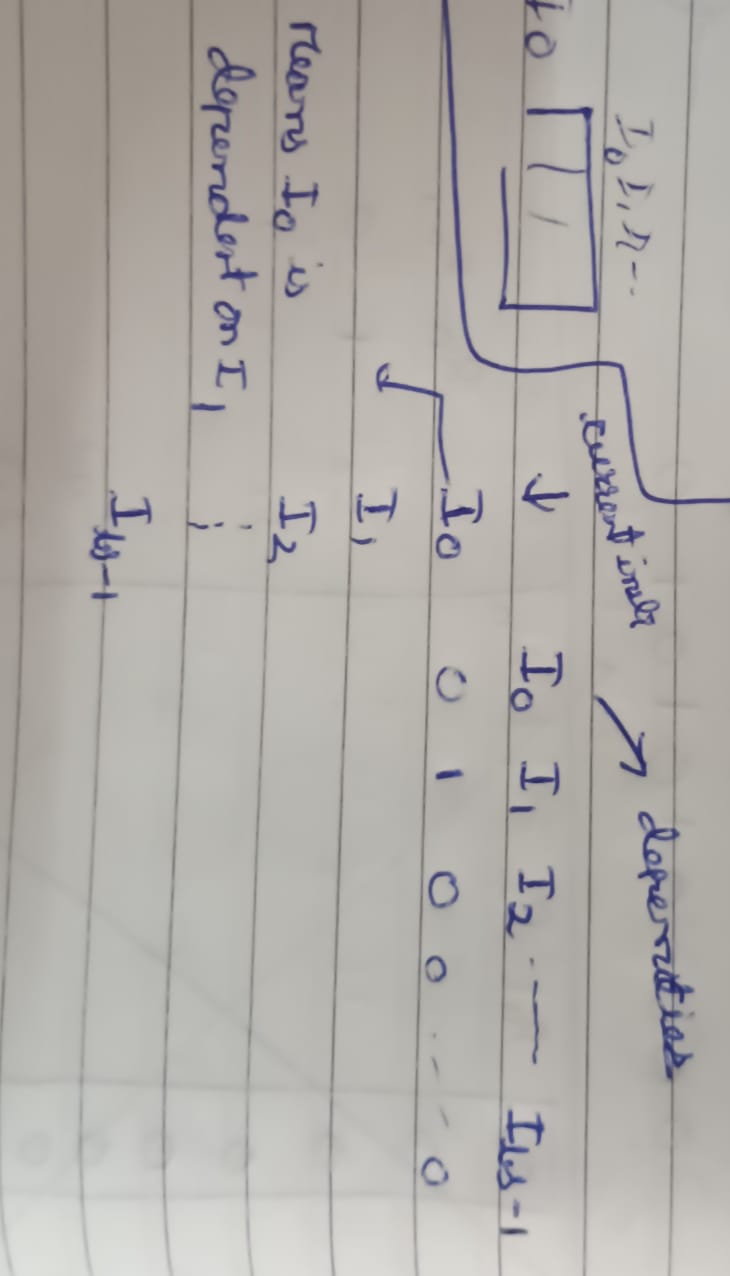 I0 I1 I2 --.
i0
current instr → dependencies
↓ I0 I1 I2 .— Ils-1
I0 0 1 0 0 .-- 0
I1
Means I0 is
I2
dependent on I1
⋮
Ils-1